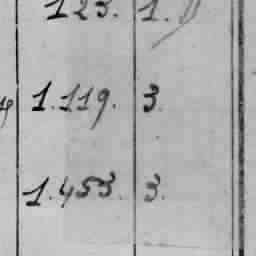 123. 1.
1.119. 3
1.453. 3.